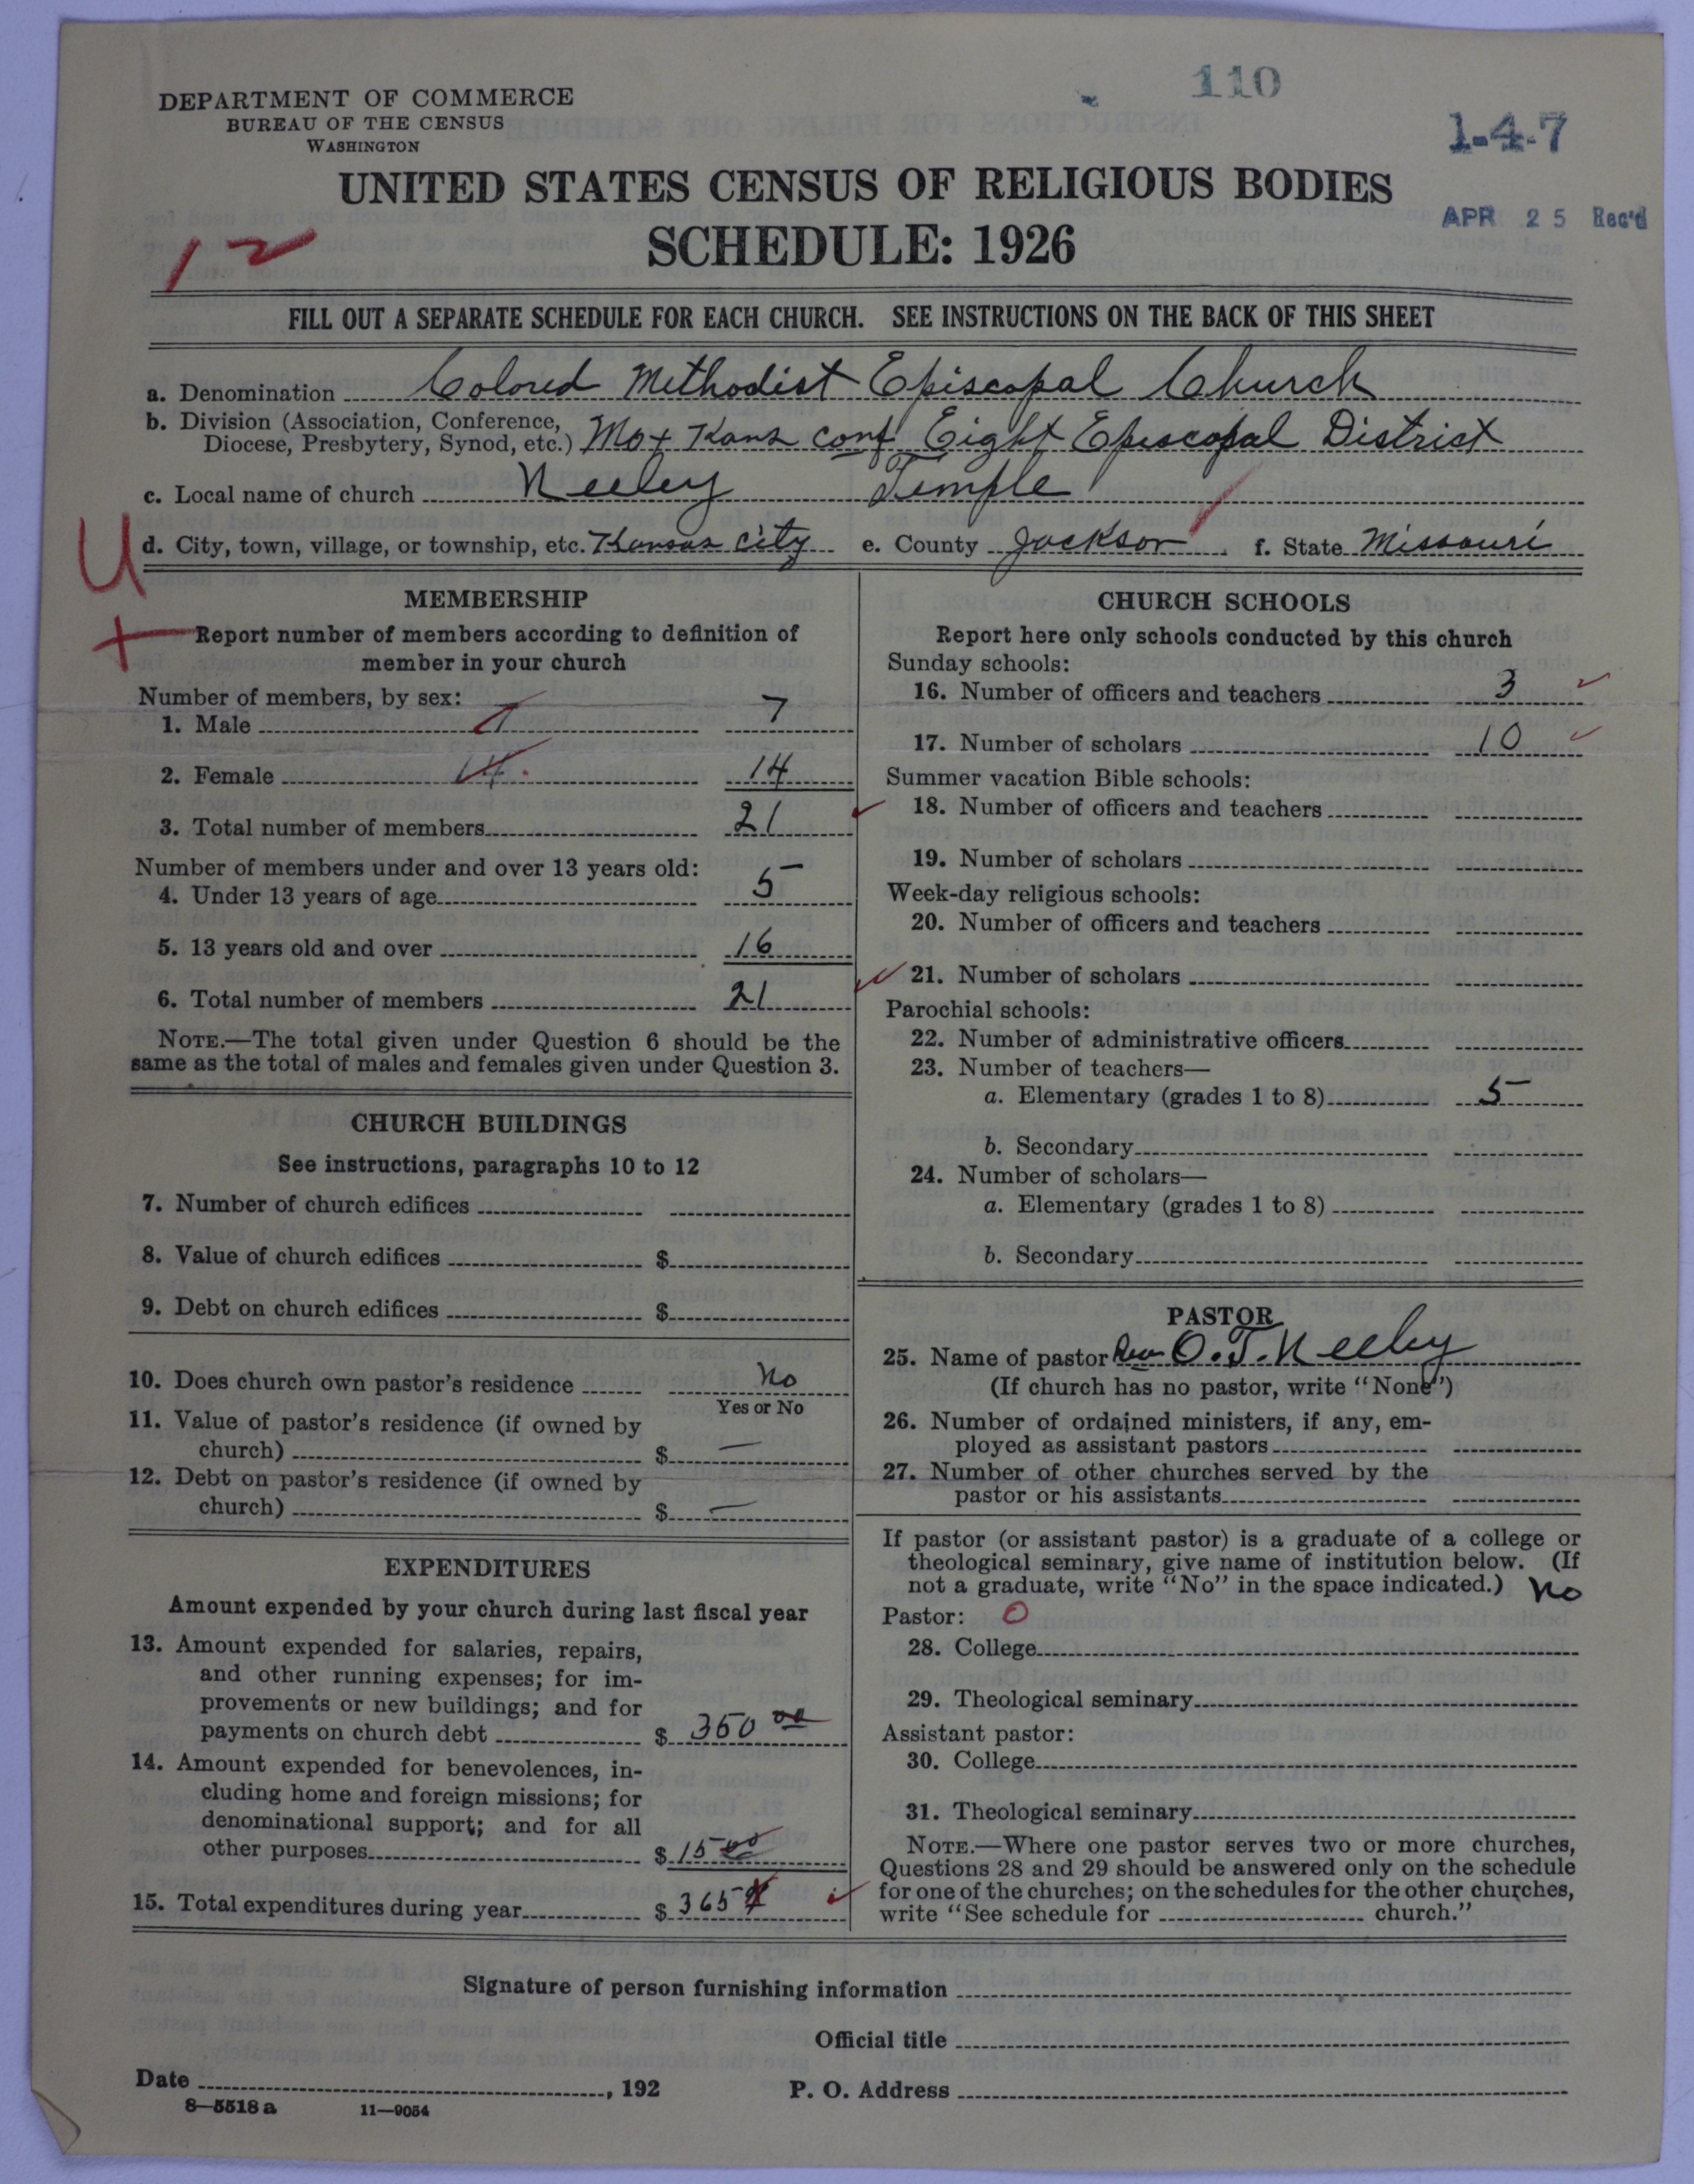 110
DEPARTMENT OF COMMERCE
BUREAU OF THE CENSUS
WASHINGTON
1-4-7
UNITED STATES CENSUS OF RELIGIOUS BODIES
SCHEDULE: 1926
APR 25 Rec'd
12
FILL OUT A SEPARATE SCHEDULE FOR EACH CHURCH. SEE INSTRUCTIONS ON THE BACK OF THIS SHEET
a. Denomination Colored Methodist Episcopal Church
b. Division (Association, Conference,
Diocese, Presbytery, Synod, etc.) Mo + Kans conf Eight Episcopal District
c. Local name of church Neeley Temple
U
d. City, town, village, or township, etc. Kansas city e. County Jackson f. State Missouri
+
MEMBERSHIP
Report number of members according to definition of
member in your church
Number of members, by sex:
1. Male 7
2. Female 14 14
3. Total number of members 21
Number of members under and over 13 years old:
4. Under 13 years of age 5
5. 13 years old and over 16
6. Total number of members 21
NOTE.—The total given under Question 6 should be the
same as the total of males and females given under Question 3.
CHURCH BUILDINGS
See instructions, paragraphs 10 to 12
7. Number of church edifices
8. Value of church edifices $
9. Debt on church edifices $
10. Does church own pastor's residence No
Yes or No
11. Value of pastor's residence (if owned by
church) $ —
12. Debt on pastor's residence (if owned by
church) $ —
EXPENDITURES
Amount expended by your church during last fiscal year
13. Amount expended for salaries, repairs,
and other running expenses; for im-
provements or new buildings; and for
payments on church debt $ 350 00
14. Amount expended for benevolences, in-
cluding home and foreign missions; for
denominational support; and for all
other purposes $ 15 00
15. Total expenditures during year $ 365
CHURCH SCHOOLS
Report here only schools conducted by this church
Sunday schools:
16. Number of officers and teachers 3
17. Number of scholars 10
Summer vacation Bible schools:
18. Number of officers and teachers
19. Number of scholars
Week-day religious schools:
20. Number of officers and teachers
21. Number of scholars
Parochial schools:
22. Number of administrative officers
23. Number of teachers—
a. Elementary (grades 1 to 8) 5
b. Secondary
24. Number of scholars—
a. Elementary (grades 1 to 8)
b. Secondary
PASTOR
25. Name of pastor Rev O. T. Neeley
(If church has no pastor, write "None")
26. Number of ordained ministers, if any, em-
ployed as assistant pastors
27. Number of other churches served by the
pastor or his assistants
If pastor (or assistant pastor) is a graduate of a college or
theological seminary, give name of institution below. (If
not a graduate, write "No" in the space indicated.) No
Pastor: 0
28. College
29. Theological seminary
Assistant pastor:
30. College
31. Theological seminary
NOTE.—Where one pastor serves two or more churches,
Questions 28 and 29 should be answered only on the schedule
for one of the churches; on the schedules for the other churches,
write "See schedule for church."
Signature of person furnishing information
Official title
Date , 192 P. O. Address
8—5518 a 11—9054